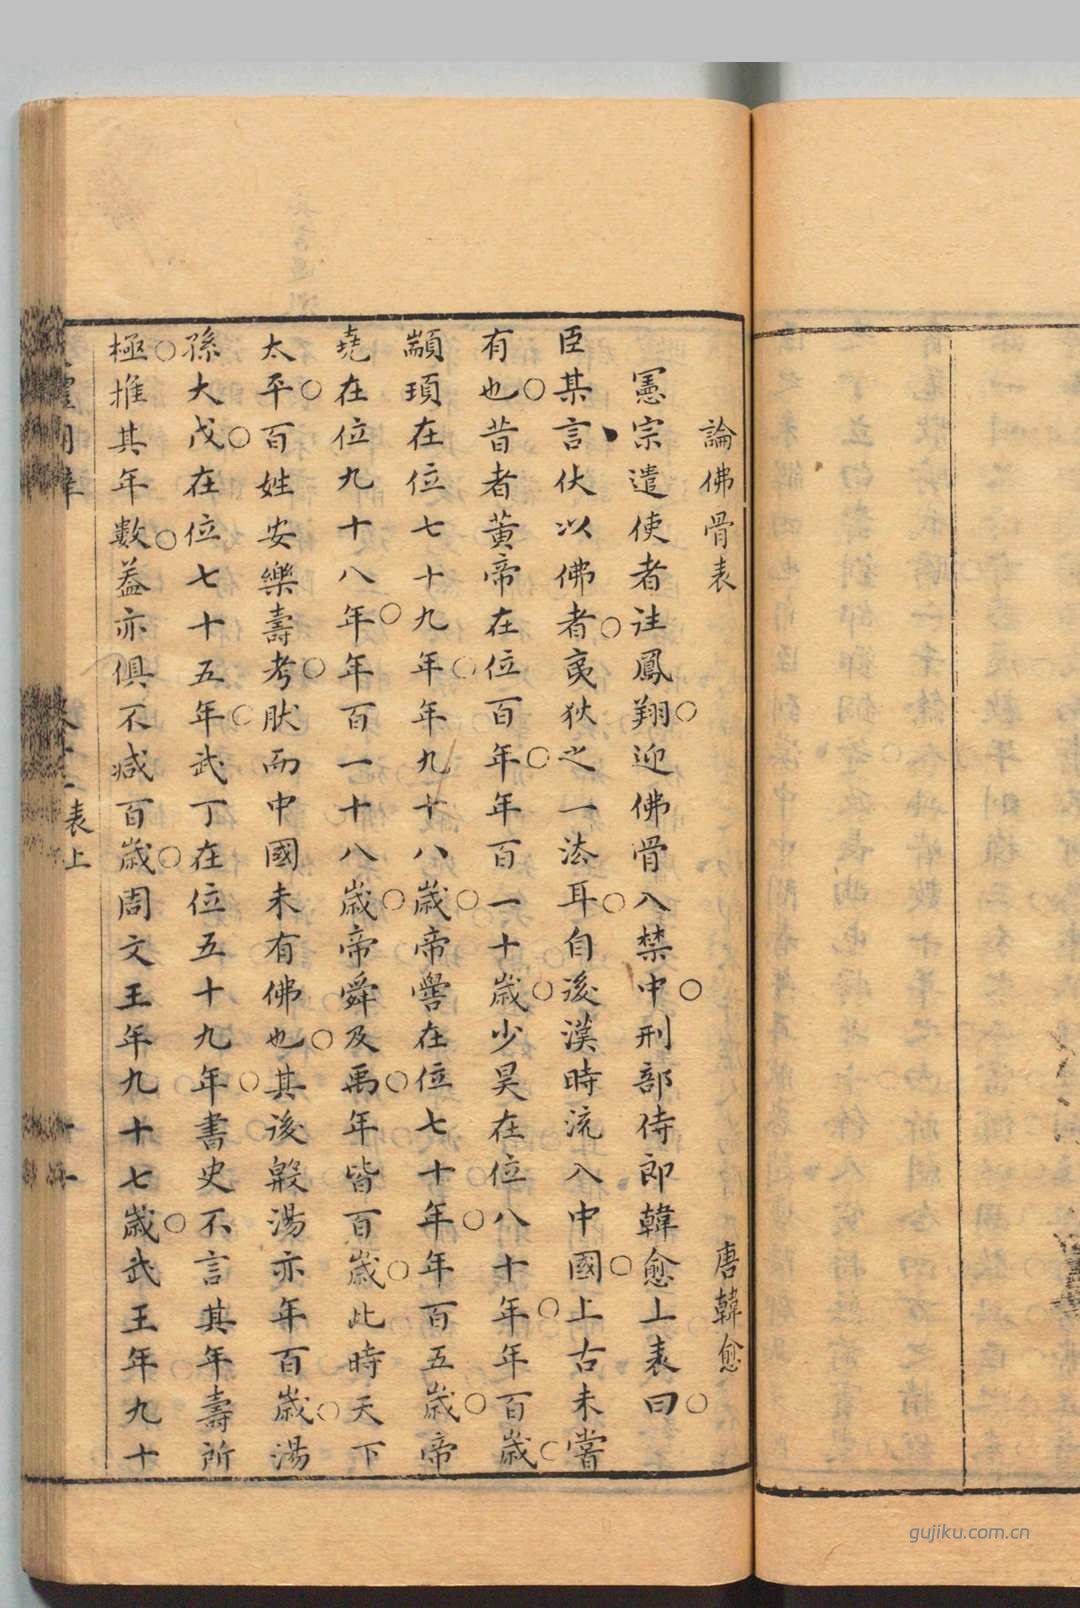 論佛骨表
唐韓愈
憲宗遣使者迬鳳翔迎佛骨入禁中刑部侍郎韓愈上表曰
臣某言伏以佛者夷狄之一法耳自後漢時流入中國上古未嘗
有也昔者黃帝在位百年年百一十歲少昊在位八十年年百歲
顓頊在位七十九年年九十八歲帝嚳在位七十年年百五歲帝
堯在位九十八年年百一十八歲帝舜及禹年皆百歲此時天下
太平百姓安樂壽考肰而中國未有佛也其後殷湯亦年百歲湯
孫大戊在位七十五年武丁在位五十九年書史不言其年壽所
極推其年數葢亦俱不減百歲周文王年九十七歲武王年九十
表上
gujiku.com.cn